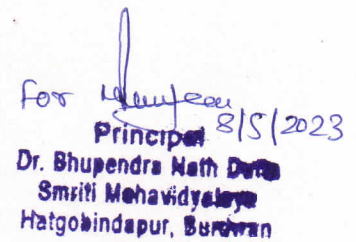 For
8/5/2023
Principal
Dr. Bhupendra Nath Dutta
Smriti Mahavidyalaya
Hatgobindapur, Burdwan